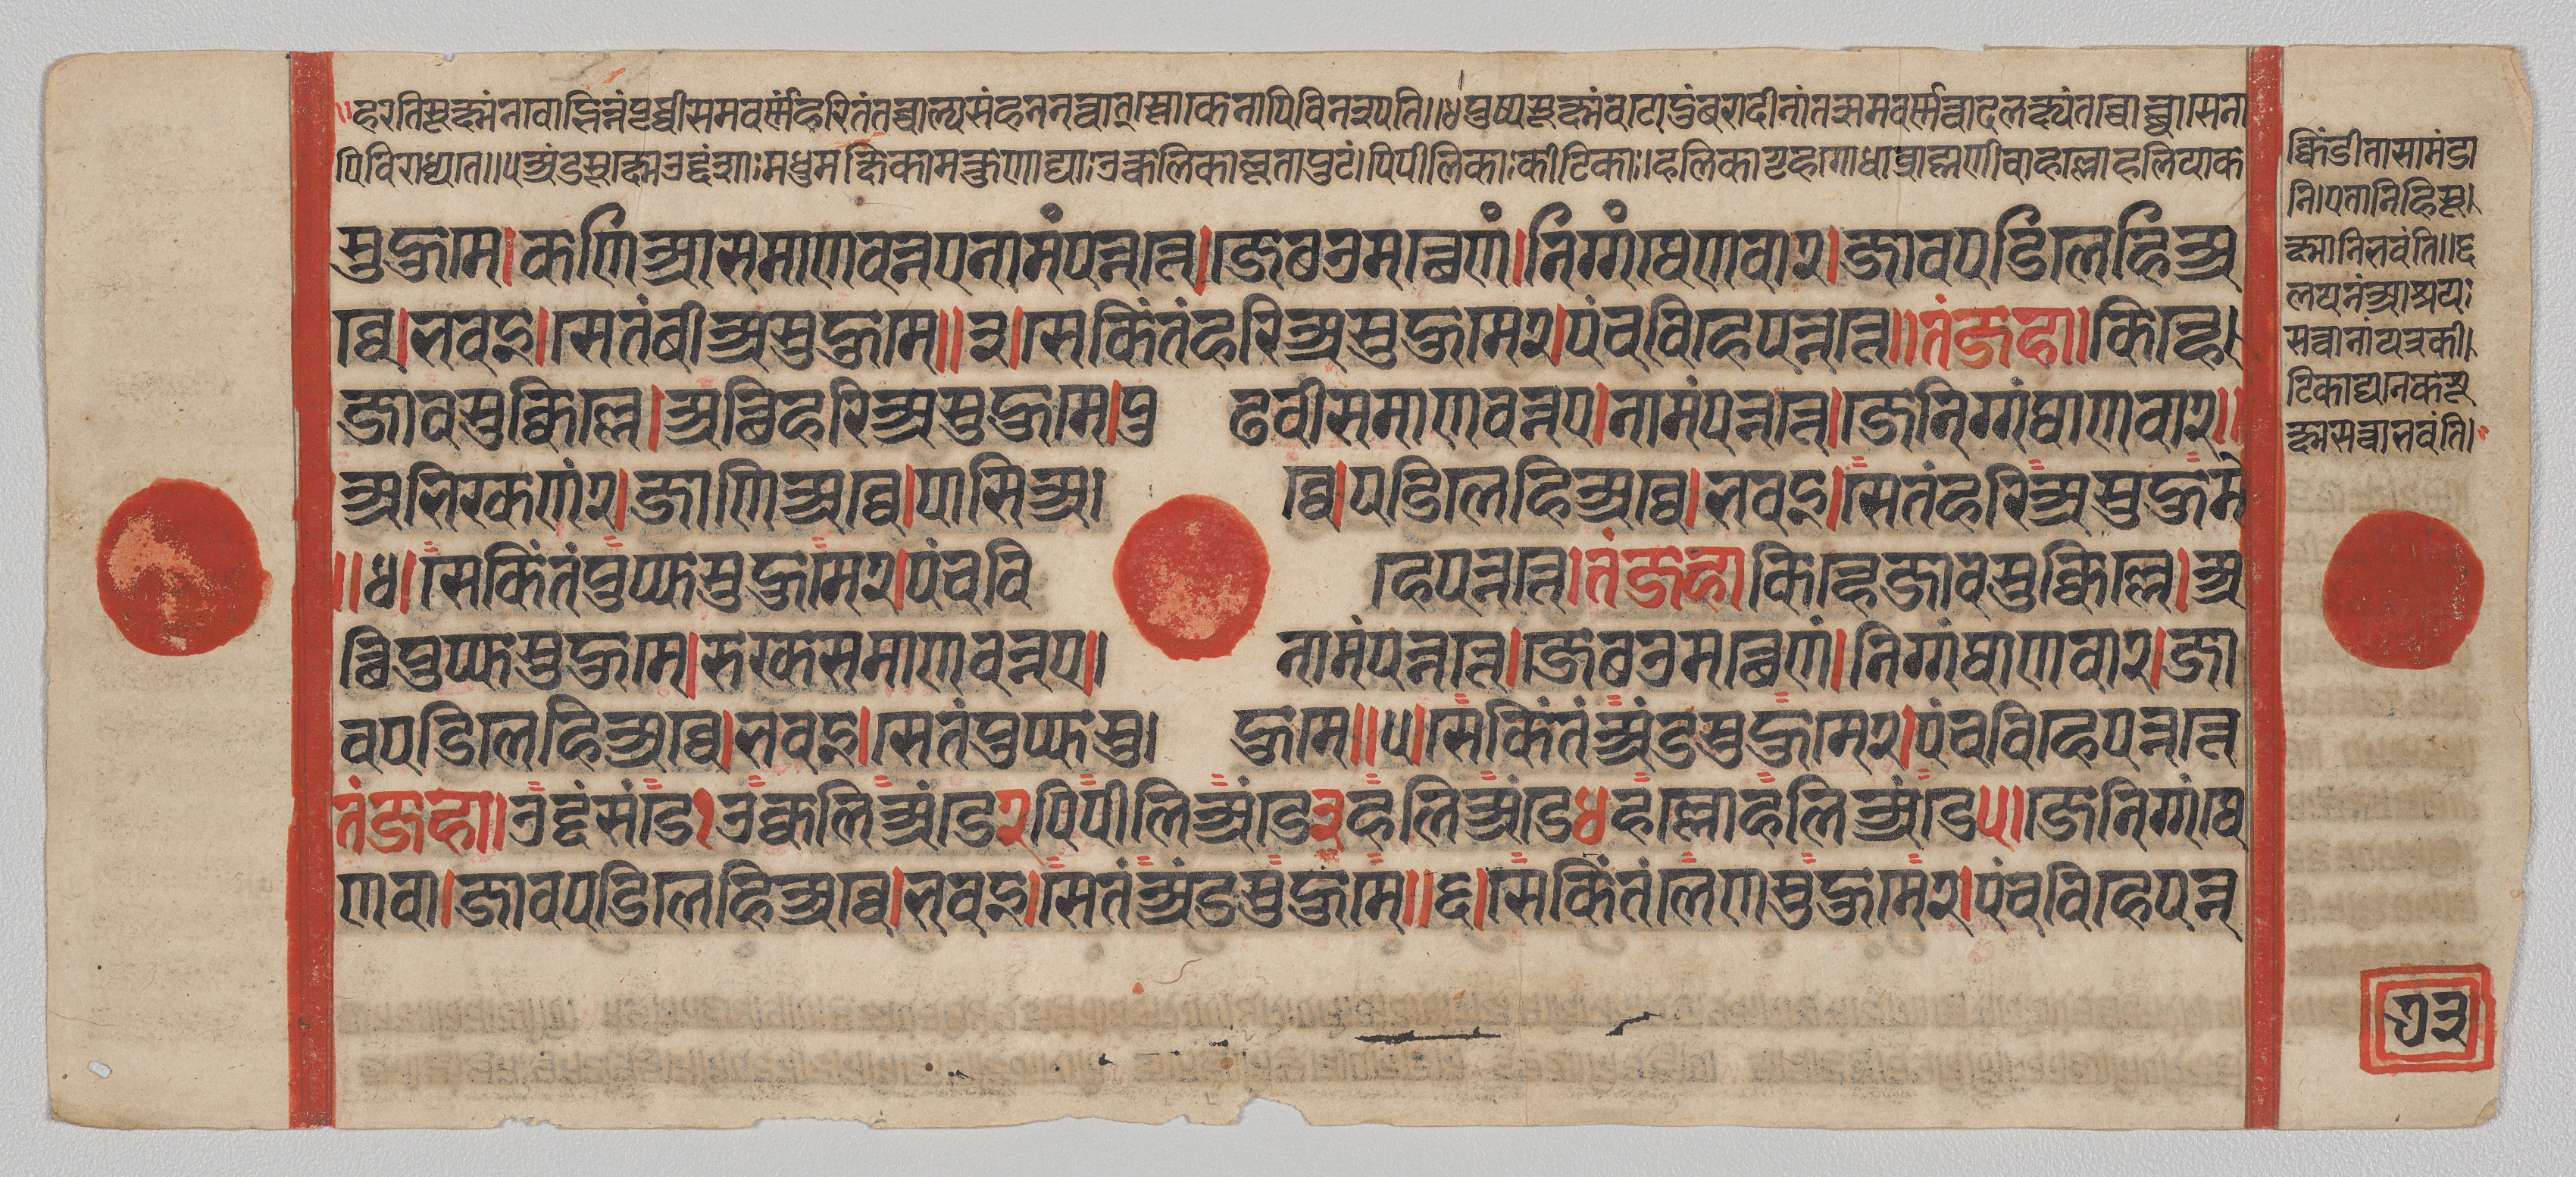 ॥हरितसूक्ष्मंनवोद्भिन्नंपृथ्वीसमवर्णंहरितंतच्चाल्पसंहननत्वात्स्तोकेनापिविनश्यति॥४पुष्पसूक्ष्मंवटोदुंबरादीनांतत्समवर्णत्वादलक्ष्यंतच्चोच्छ्वासेना
पिविराध्यते॥५अंडसूक्ष्मउद्दंशाःमधुमक्षिकामत्कुणाद्याःउक्कलिकालूतापुटं।पिपीलिकाःकीटिकाः।हलिकागृहगोधाब्राह्मणीवाहल्लोहलियाक
सुहुमे।कणिआसमाणवन्नएनामंपन्नत्ते।जेछउमत्थेणं।निग्गंथेणवा२।जावपडिलेहिअ
व्वे।भवइ।सेतंबीअसुहुमे॥३।सेकिंतंहरिअसुहुमे२।पंचविहेपन्नत्ते॥तंजहा॥किण्हे।
जावसुक्किल्ले।अत्थिहरिअसुहुमे।पु ढवीसमाणवन्नए।नामंपन्नत्ते।जेनिग्गंथेणवा२॥
अभिक्खणं२।जाणिअव्वे।पासिअ। व्वे।पडिलेहिअव्वे।भवइ।सेतंहरिअसुहुमे
॥४।सेकिंतंपुप्फसुहुमे२।पंचवि हेपन्नत्ते।तंजहाकिण्हेजावसुक्किल्ले।अ
त्थिपुप्फसुहुमे।रुक्खसमाणवन्नए॥ नामंपन्नत्ते।जेछउमत्थेणं।निग्गंथेणवा२।जा
वपडिलेहिअव्वे।भवइ।सेतंपुप्फसु। हुमे॥५।सेकिंतंअंडसुहुमे२।पंचविहेपन्नत्ते
तंजहा॥उद्दंसंडे१उक्कलिअंडे२पिपीलिअंडे३हलिअंडे४हल्लोहलिअंडे५॥जेनिग्गंथे
णवा।जावपडिलेहिअव्वे।भवइ।सेतंअंडसुहुमे॥६।सेकिंतंलेणसुहुमे२।पंचविहेपन्न
क्किंडीतासामंडा
नि।एतानिहिसू।
क्ष्मानिभवंति॥६
लयनंआश्रयः
सत्त्वानांयत्रकी।
टिकाद्यनेकसू
क्ष्मसत्त्वाभवंति।
७३